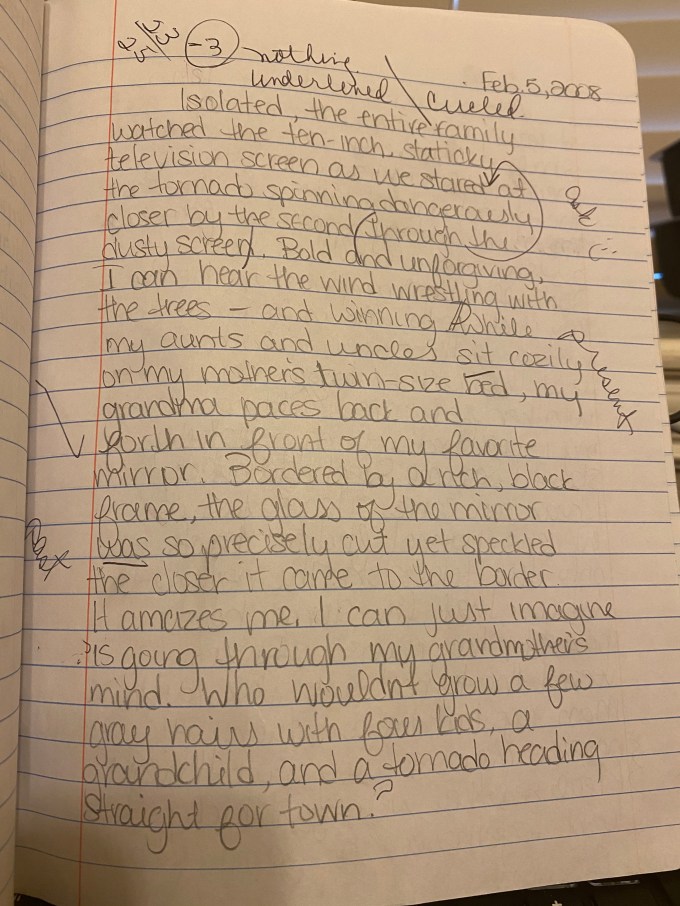 -3 nothing
underlined \ circled
Feb. 5, 2008
Isolated, the entire family
watched the ten-inch, staticky
television screen as we stared at
the tornado spinning dangerously
closer by the second through the
dusty screen. Bold and unforgiving,
I can hear the wind wrestling with
the trees – and winning. While
my aunts and uncles sit cozily
present
on my mother's twin-size bed, my
grandma paces back and
forth in front of my favorite
mirror. Bordered by a rich, black
frame, the glass of the mirror
past
was so precisely cut yet speckled
the closer it came to the border.
It amazes me. I can just imagine
? is going through my grandmother's
mind. Who wouldn't grow a few
gray hairs with four kids, a
grandchild, and a tornado heading
straight for town?